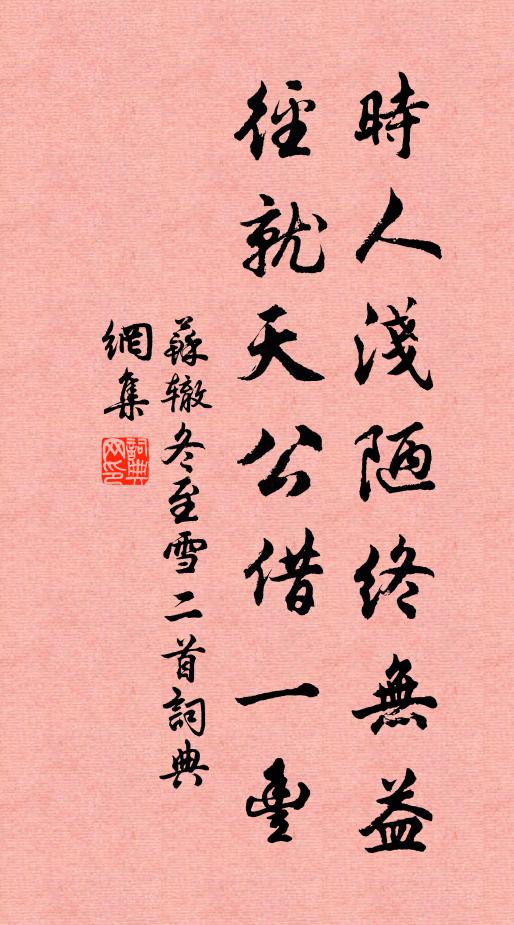 時人淺陋終無益
徑就天公借一豊
蘇轍冬至雪二首詞典
網集
詞典
网印